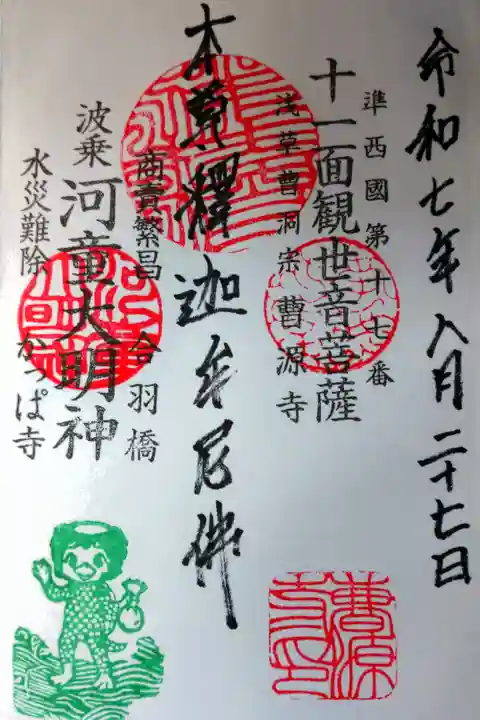 令和七年八月二十七日
準西國第十七番
十一面観世音菩薩
浅草曹洞宗曹源寺
本尊釋迦牟尼佛
商賣繁昌 合羽橋
波乗 河童大明神
水災難除 かっぱ寺
曹源寺印